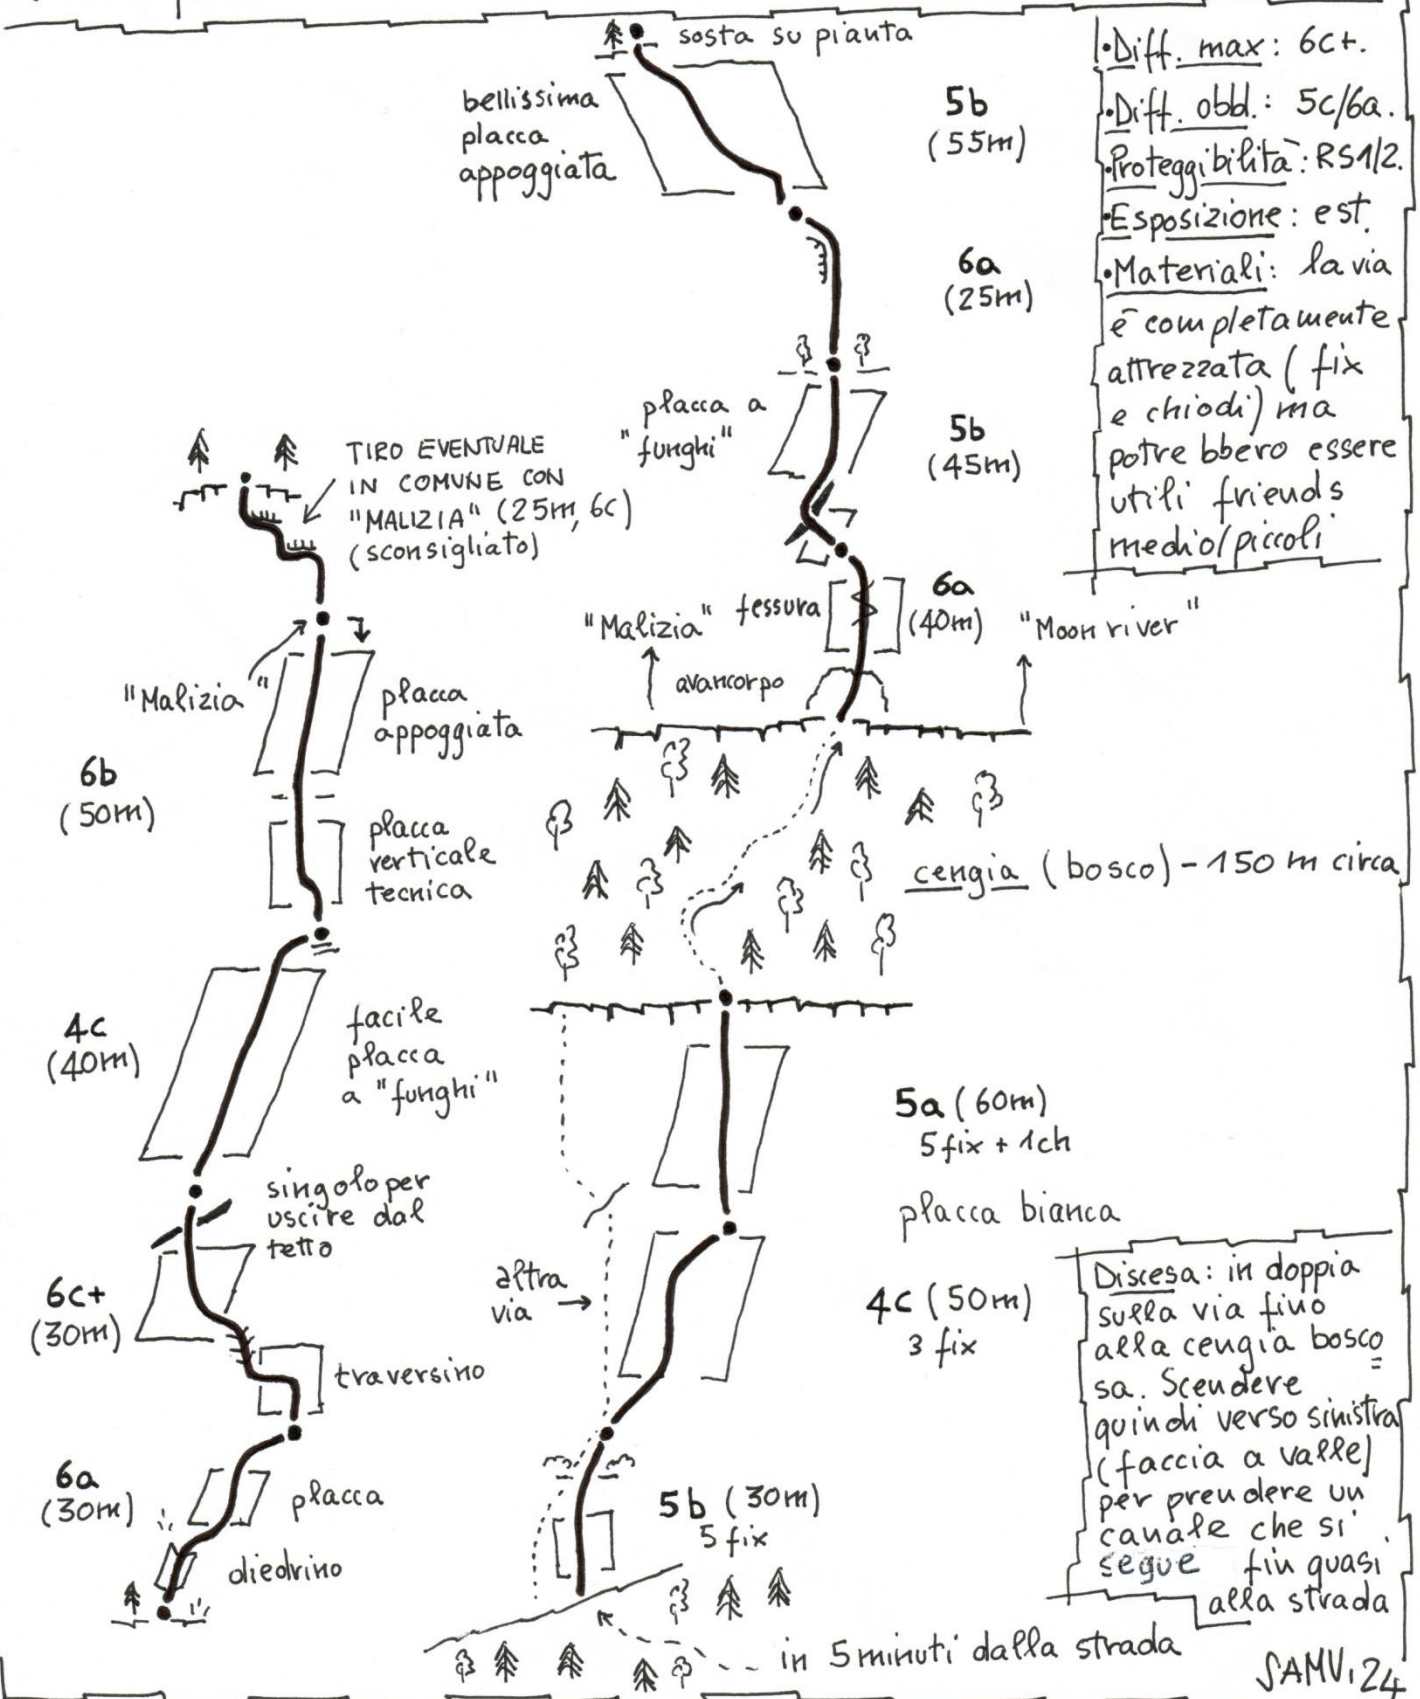 sosta su pianta
bellissima
placca
appoggiata
5b
(55m)
6a
(25m)
placca a
"funghi"
5b
(45m)
6a
(40m)
fessura
"Malizia"
"Moon river"
avancorpo
cengia (bosco) - 150 m circa
5a (60m)
5 fix + 1ch
placca bianca
4c (50m)
3 fix
altra
via
5b (30m)
5 fix
in 5 minuti dalla strada
TIRO EVENTUALE
IN COMUNE CON
"MALIZIA" (25m, 6c)
(sconsigliato)
"Malizia"
placca
appoggiata
6b
(50m)
placca
verticale
tecnica
4c
(40m)
facile
placca
a "funghi"
singolo per
uscire dal
tetto
6c+
(30m)
traversino
6a
(30m)
placca
diedrino
•Diff. max: 6c+.
•Diff. obbl.: 5c/6a.
•Proteggibilità: RS1/2.
•Esposizione: est.
•Materiali: la via
è completamente
attrezzata (fix
e chiodi) ma
potrebbero essere
utili friends
medio/piccoli
Discesa: in doppia
sulla via fino
alla cengia bosco=
sa. Scendere
quindi verso sinistra
(faccia a valle)
per prendere un
canale che si
segue fin quasi
alla strada
SAMU, 24